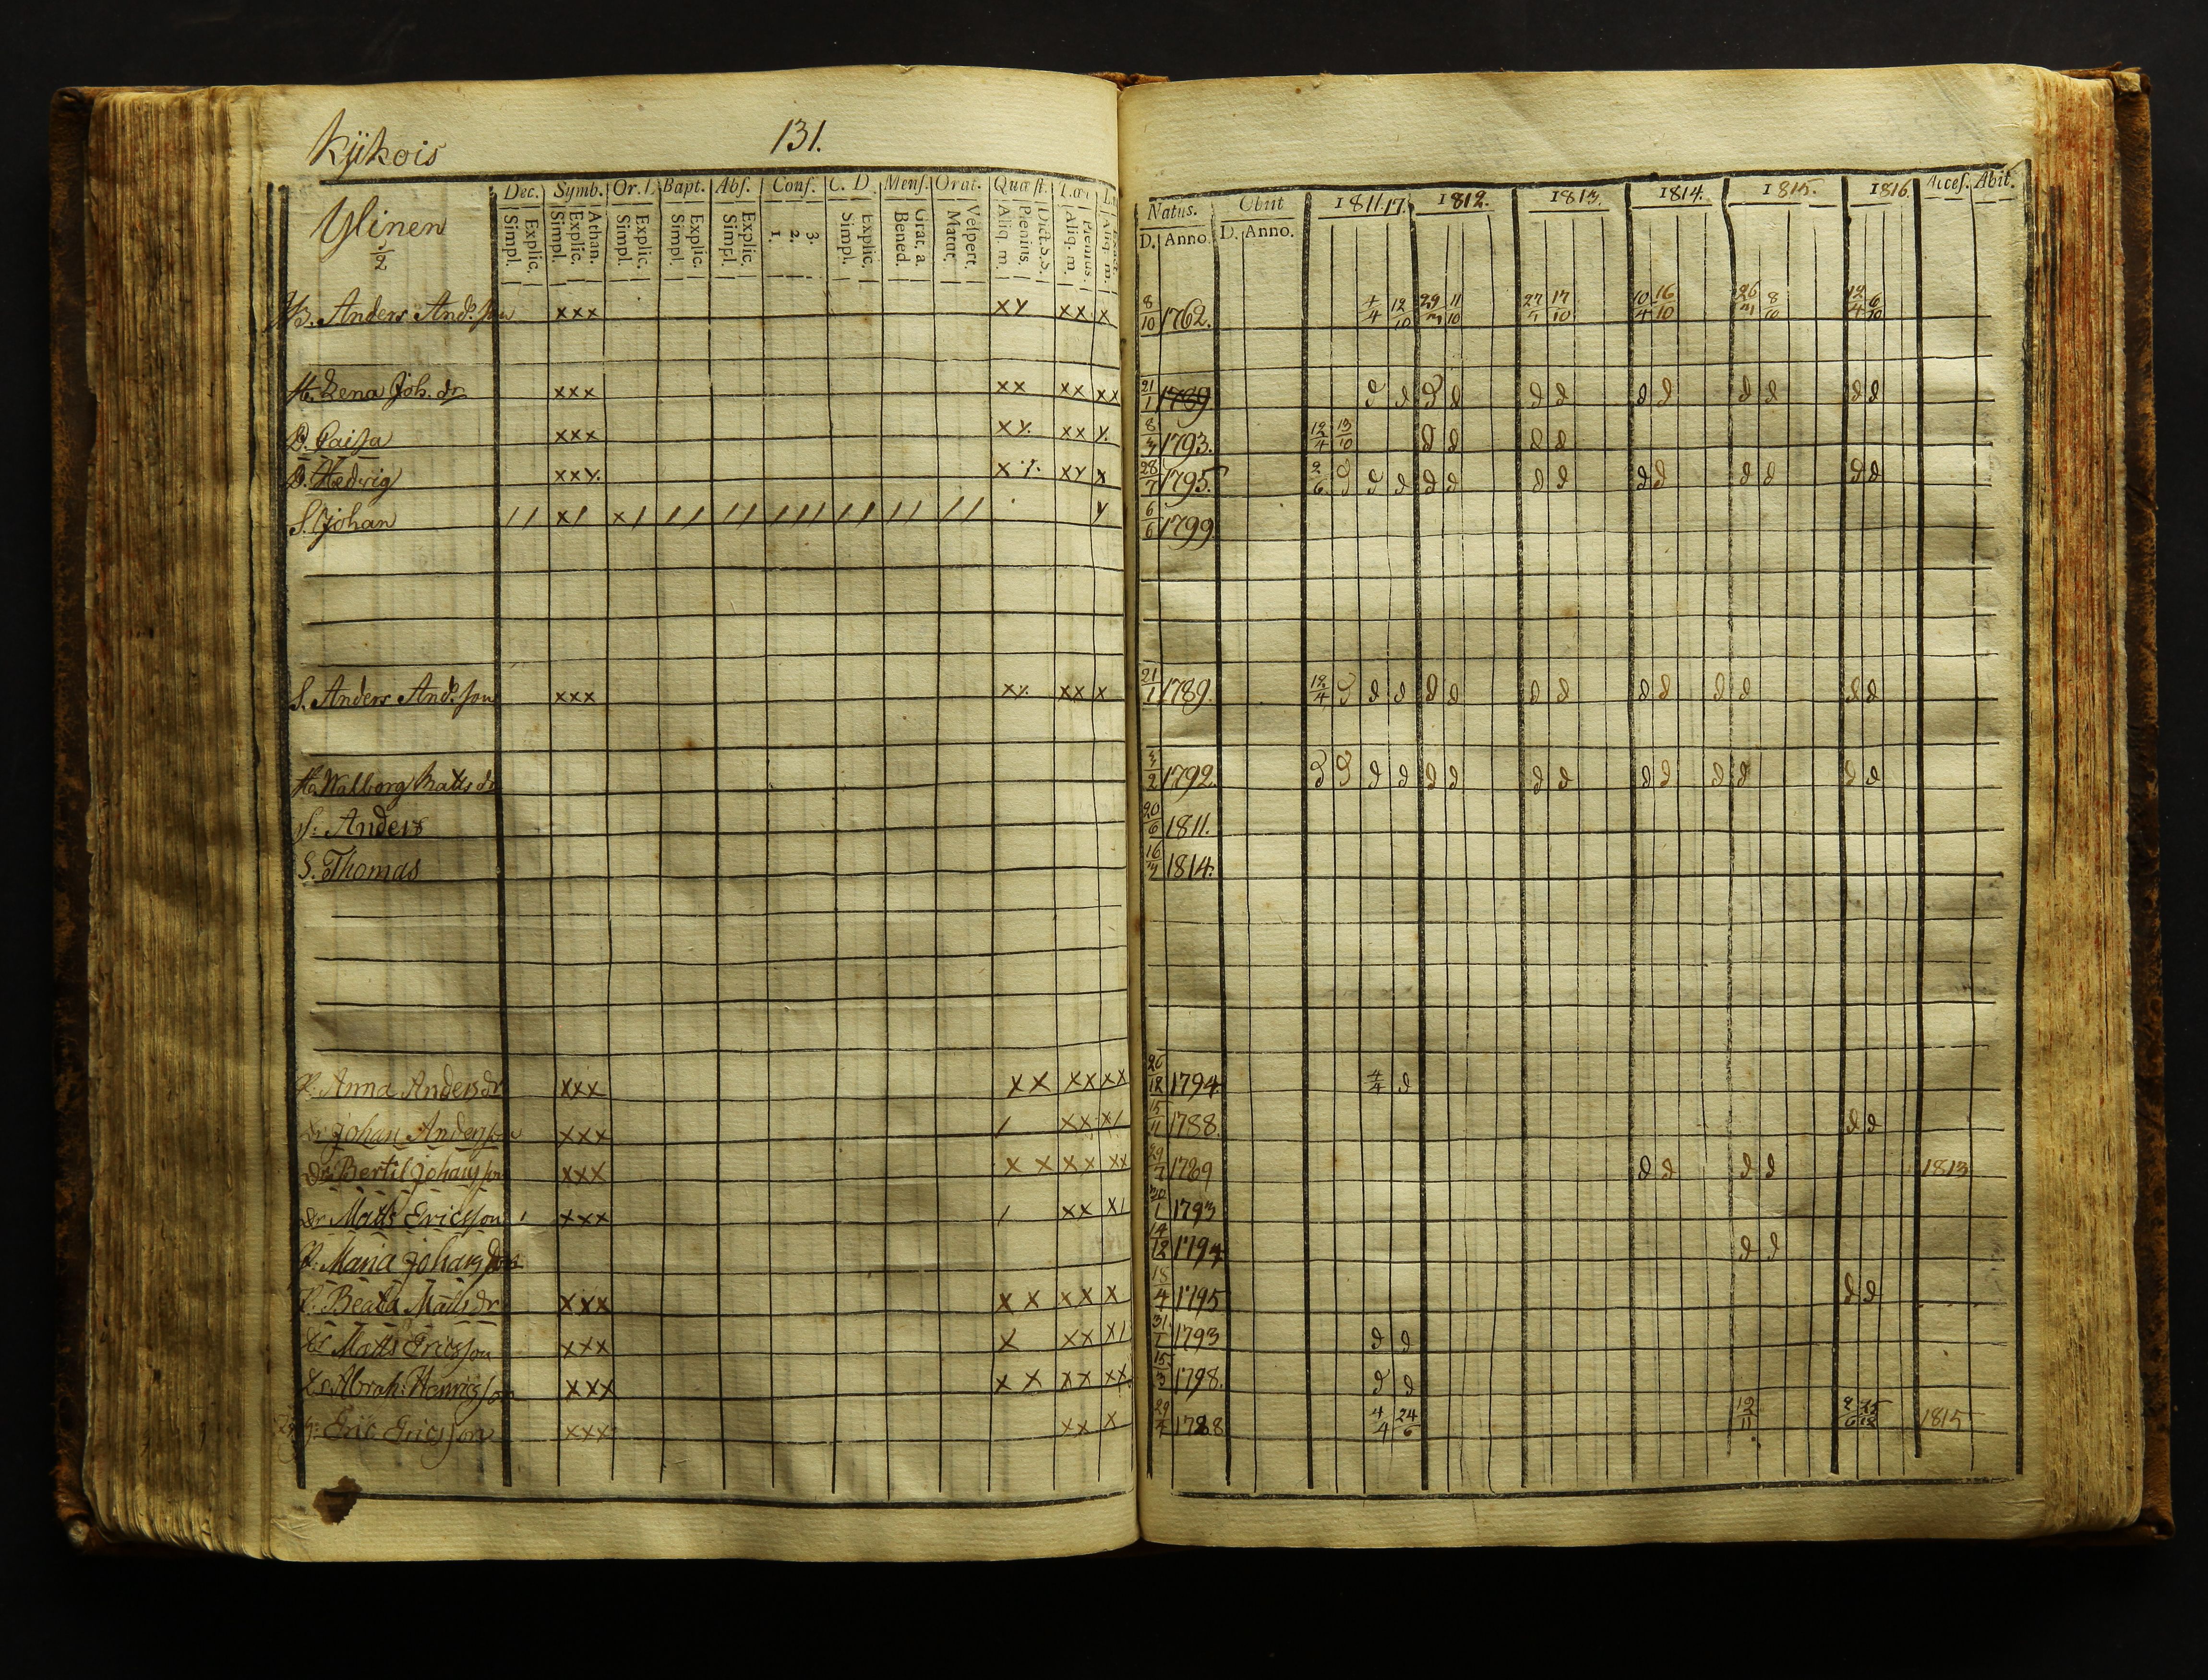 Kijkois 131.
Dec. Symb. Or. D. Bapt. Abs. Conf. C. D. Mens. Orat. Quæst. Natus. Obiit 1811.17. 1812. 1813. 1814. 1815. 1816 Acces. Abit.
Explic. Simpl. Athan. Explic. Simpl. Explic. Simpl. Explic. Simpl. Explic. Simpl. 3. 2. 1. Explic. Simpl. Grat. a. Bened. Vespert. Matut. Dict. S. S. Plenius. Aliq. m. Plenius. Aliq. m. Exact. Aliq. m. D. Anno. D. Anno.
Ylinen
1/2
B. Anders And:son xxx xy xx x 8/10 1762. 4/4 12/10 29/3 11/10 27/4 17/10 10/4 16/10 26/3 8/10 12/4 6/10
H. Lena Joh. dr xxx xx xx xx 21/1 1789 d d d d d d d d d d d d
D. Caisa xxx xy. xx y. 8/3 1793. 12/4 13/10 d d d d
D. Hedvig xxy. x y. xy x 28/7 1795. 2/6 d d d d d d d d d d d d d
S. Johan // x/ x/ // // /// // // // y 6/6 1799
S. Anders And:son xxx xy. xx x 21/1 1789. 12/4 d d d d d d d d d d d d d
H. Walborg Matts dr 3/2 1792. d d d d d d d d d d d d d d
S: Anders 20/6 1811.
S. Thomas 16/3 1814.
P. Anna Anders dr xxx xx xx xx 26/12 1794 4/4 d
Dr Johan Andersson xxx / xx x/ 15/11 1788. d d
Dr Bertil Johansson xxx xx xx xx 29/7 1789 d d d d 1813
Dr Matts Ericsson xxx / xx x/ 30/1 1793
P: Maria Johans dr 14/12 1794 d d
P. Beata Matts dr xxx xx xx x 18/4 1795 d d
Dr Matts Ericsson xxx x xx x/ 31/1 1793 d d
Dr Abrah: Henricsson xxx xx xx xx 15/3 1798. d d
Eric Ericsson xxx xx x 29/4 1788 4/4 24/6 12/11 1815